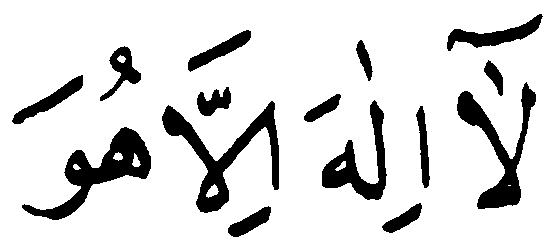 لَآ اِلٰهَ اِلَّا هُوَ